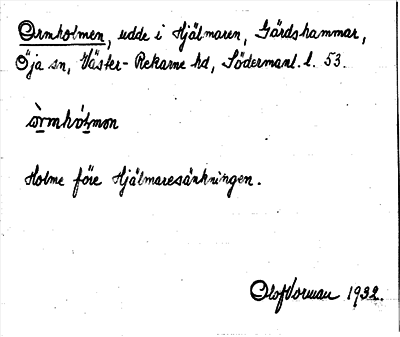 Ormholmen, udde i Hjälmaren, Gärdshammar,
Öja sn, Väster-Rekarne hd, Södermanl. l. 53.
òrmhólmən
Holme före Hjälmaresänkningen.
Olof Norman 1932.